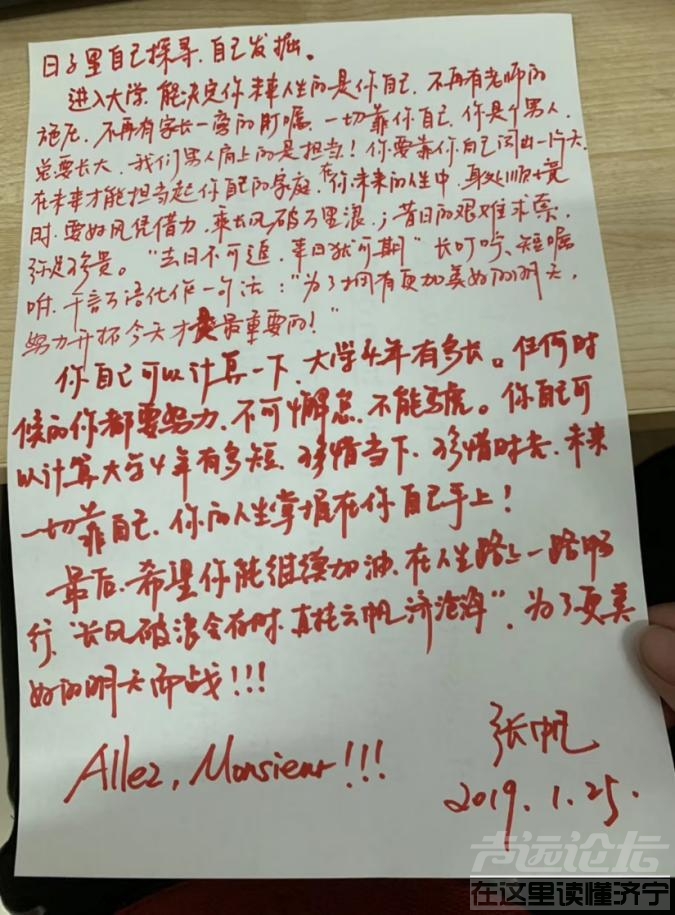 日子里自己探寻、自己发掘。
进入大学,能决定你未来人生的是你自己,不再有老师的
施压,不再有家长一旁的叮嘱,一切靠你自己,你是个男人,
总要长大,我们男人肩上的是担当!你要靠你自己闯出一片天,
在未来才能担当起你自己的家庭,在你未来的人生中,身处顺境
时,要好风凭借力,乘长风破万里浪,;昔日的艰难求索,
弥足珍贵。“去日不可追,来日犹可期”长叮咛、短嘱
咐,千言万语化作一句话:“为了拥有更加美好的明天,
努力开怀今天才是最重要的!”
你自己可以计算一下,大学4年有多长。任何时
候的你都要努力,不可懈怠,不能马虎。你自己可
以计算大学4年有多短,珍惜当下,珍惜时光,未来
一切靠自己,你的人生掌握在你自己手上!
最后,希望你能继续加油,在人生路上一路畅
行,“长风破浪会有时,直挂云帆济沧海”,为了更美
好的明天而战!!!
Allez, Monsieur!!!
张帆
2019.1.25.
声远论坛
在这里读懂济宁